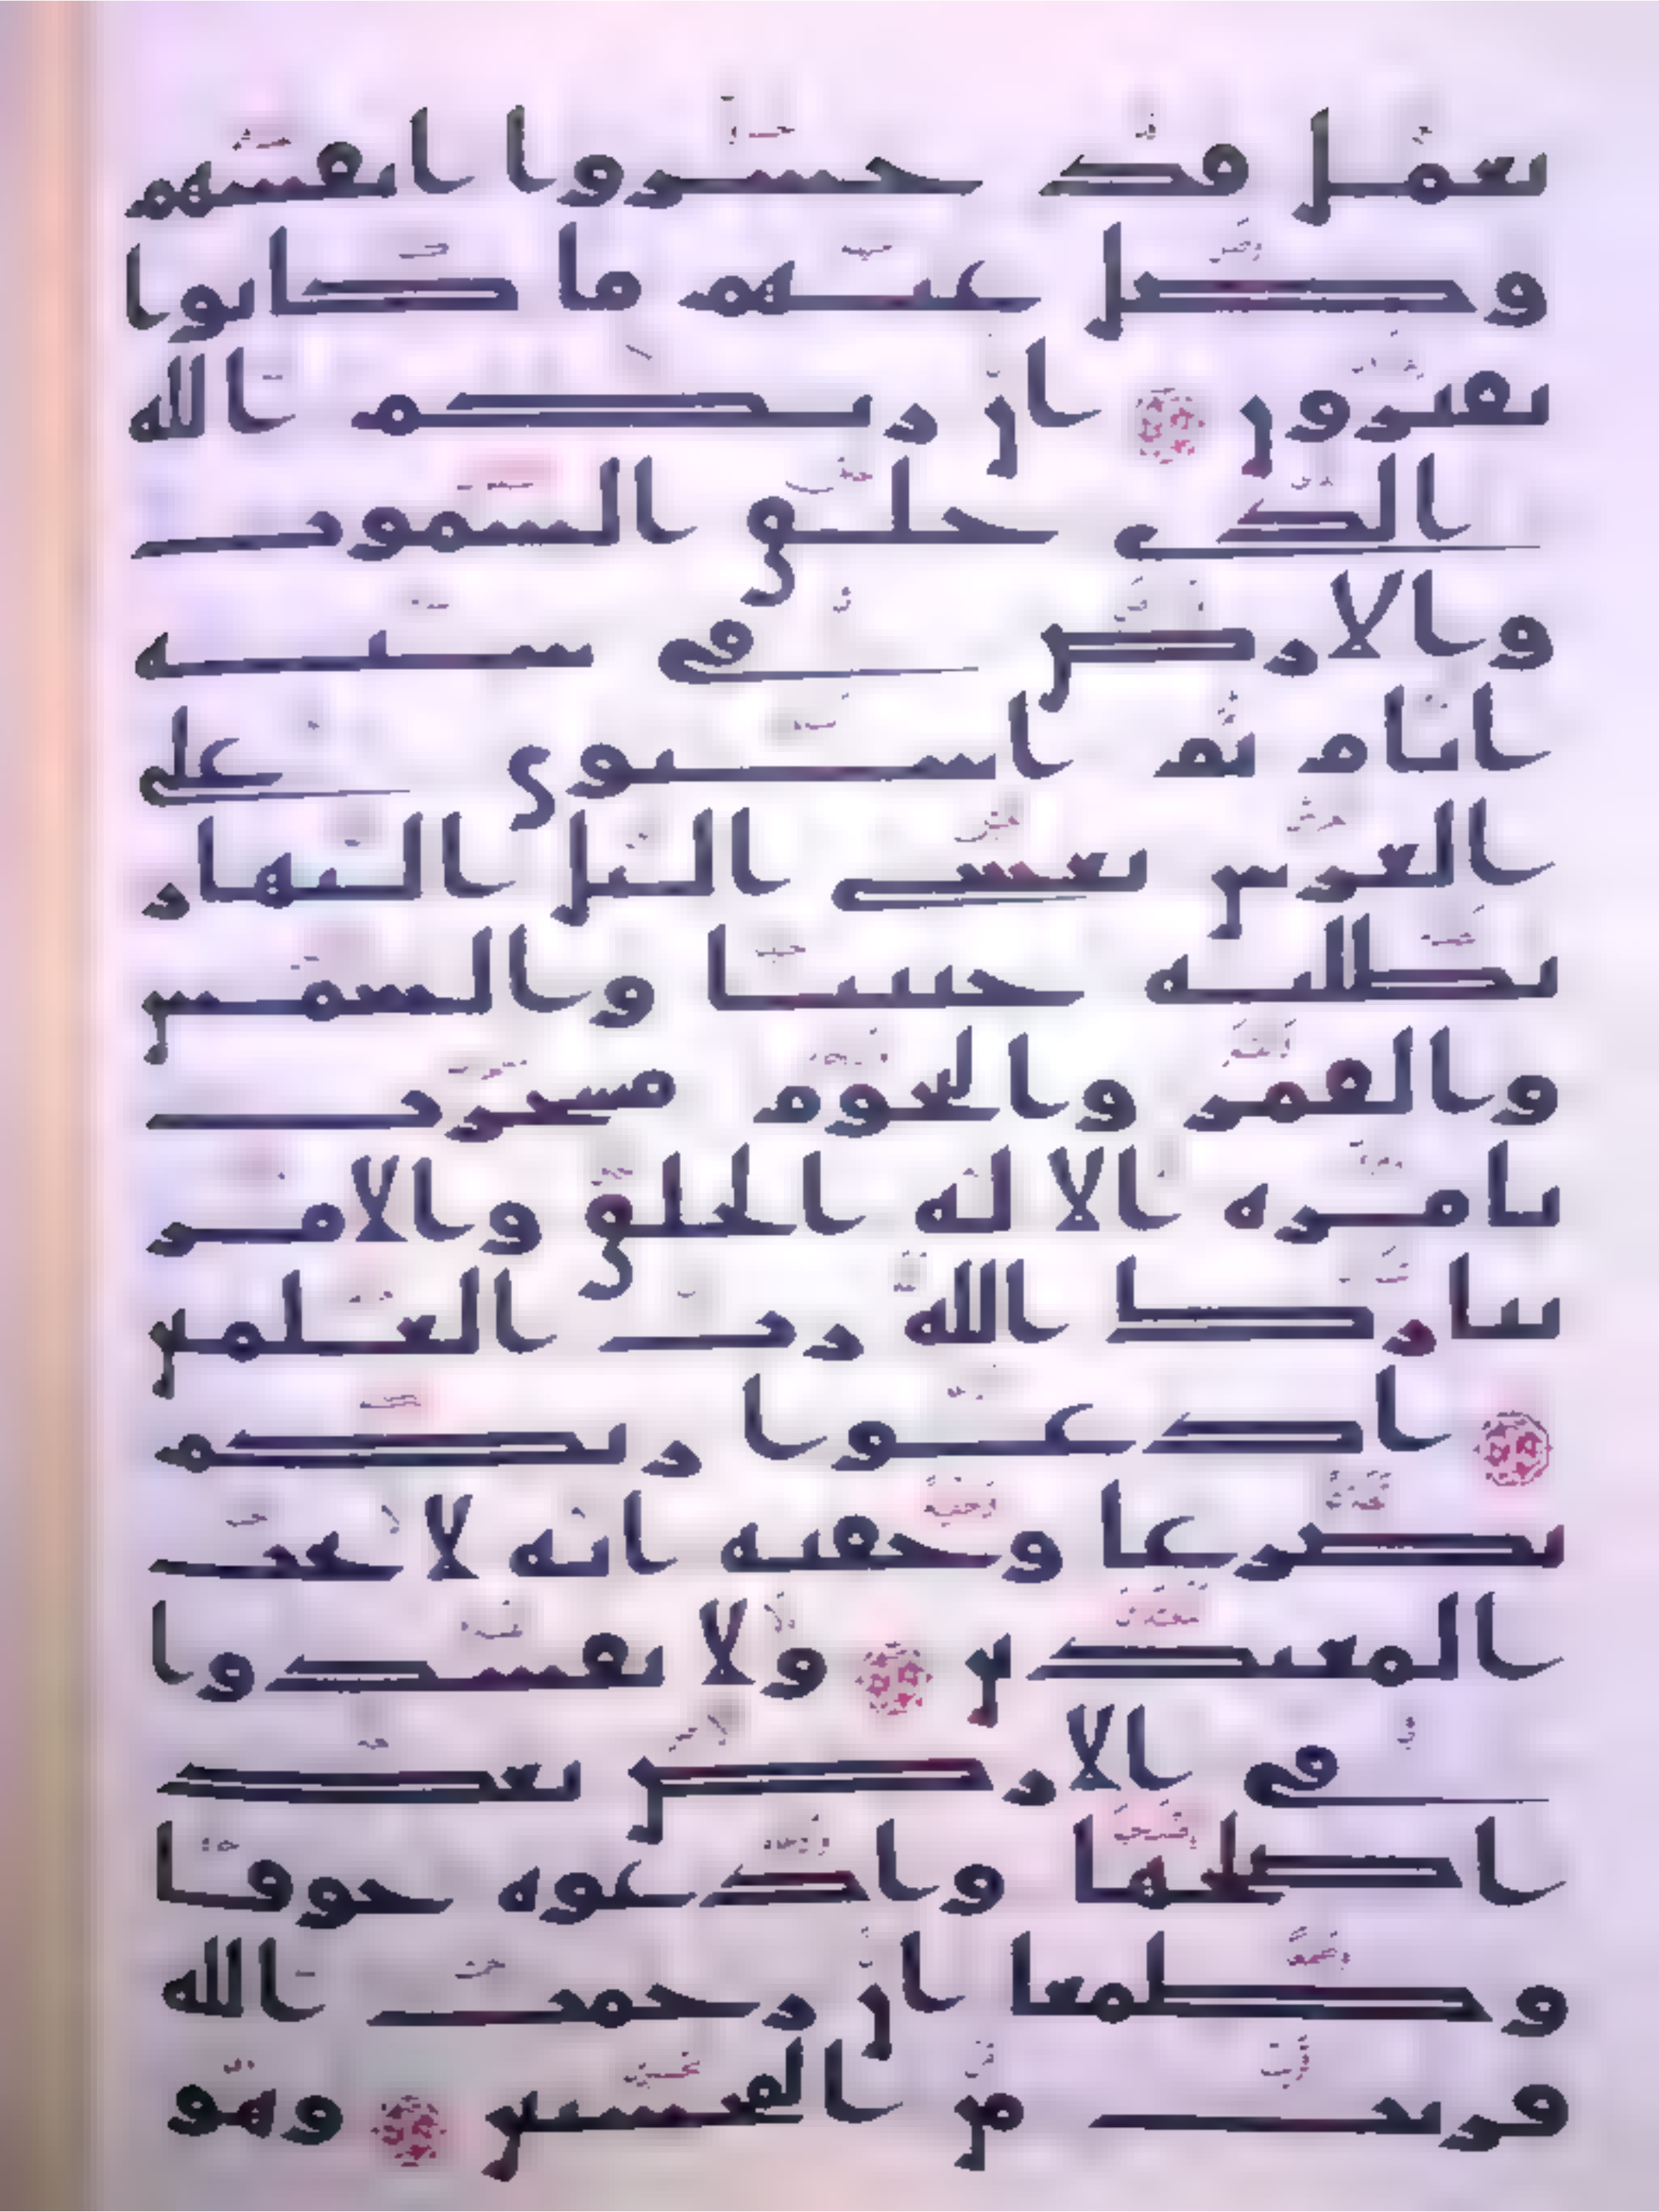 نعمل قد خسروا انفسهم
وضل عنهم ما كانوا
يفترون ان ربكم الله
الذي خلق السموت
والارض في ستة
ايام ثم استوى على
العرش يغشي اليل النهار
يطلبه حثيثا والشمس
والقمر والنجوم مسخرت
بامره الا له الخلق والامر
تبارك الله رب العلمين
ادعوا ربكم
تضرعا وخفية انه لا يحب
المعتدين ولا تفسدوا
في الارض بعد
اصلحها وادعوه خوفا
وطمعا ان رحمت الله
قريب من المحسنين وهو